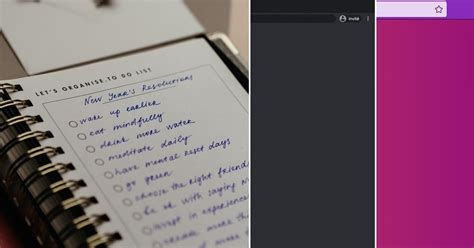 LET'S ORGANISE TO DO LIST
New Year's Resolutions
wake up earlier
eat mindfully
drink more water
meditate daily
have mental reset days
go green
choose the right friends
be ok with saying
invest in experience
create more